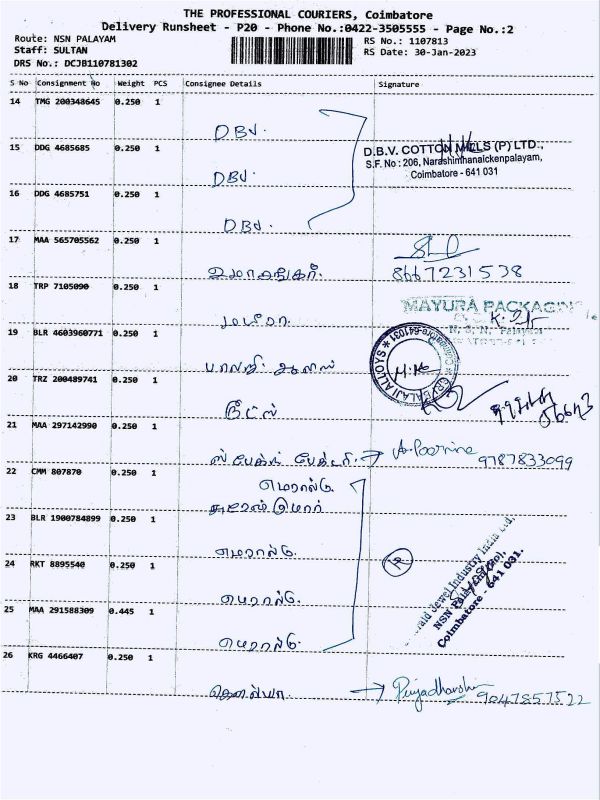 THE PROFESSIONAL COURIERS, Coimbatore
Delivery Runsheet - P20 - Phone No.:0422-3505555 - Page No.:2
Route: NSN PALAYAM
Staff: SULTAN
DRS No.: DCJB110781302
RS No.: 1107813
RS Date: 30-Jan-2023
S No Consignment No Weight PCS Consignee Details Signature
14 TMG 200348645 0.250 1
DBV.
15 DDG 4685685 0.250 1
D.B.V. COTTON MILLS (P) LTD.,
S.F. No : 206, Narashimhanaickenpalayam,
Coimbatore - 641 031
DBV.
16 DDG 4685751 0.250 1
DBV.
17 MAA 565705562 0.250 1
உமாசங்கர்.
8667231538
18 TRP 7105090 0.250 1
MAYURA PACKAGING
மயூரா.
19 BLR 4603960771 0.250 1
பாலாஜி
BALAJI ALLOYS
20 TRZ 200489741 0.250 1
21 MAA 297142990 0.250 1
9787833099
22 CMM 807870 0.250 1
எமரால்டு.
23 BLR 1900784899 0.250 1
எமரால்டு.
24 RKT 8895540 0.250 1
Jewel Industry India Ltd.,
NSN Palayam
Coimbatore - 641 031.
எமரால்டு.
25 MAA 291588309 0.445 1
எமரால்டு.
26 KRG 4466407 0.250 1
Priyadharshini 9047857522